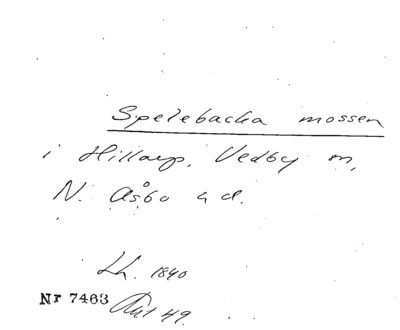 Spelebacka mossen
i Hillarp, Vedby sn,
N. Åsbo hd.
Lh. 1840
Nr 7463
Akt 49.